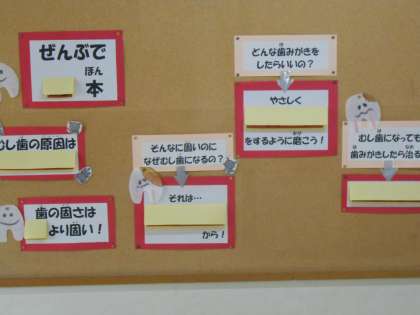 ぜんぶで
ほん
本
むし歯の原因は
歯の固さは
より固い！
そんなに固いのに
なぜむし歯になるの？
それは…
から！
どんな歯みがきを
したらいいの？
やさしく
をするように磨こう！
むし歯になっても
歯みがきしたら治る